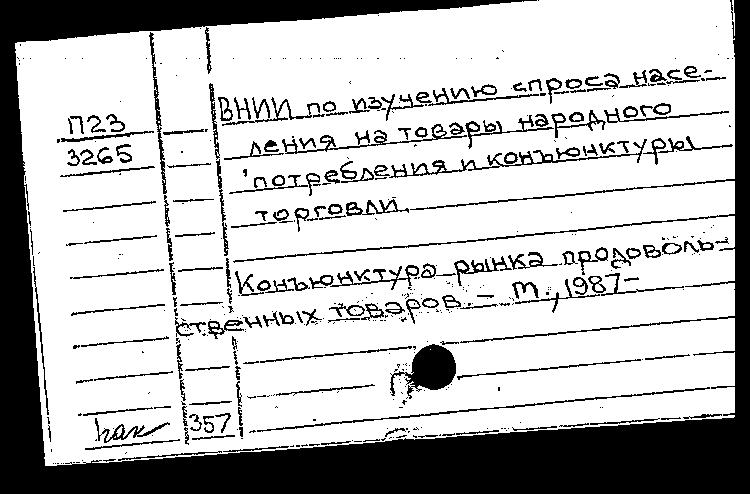 П23
3265
ВНИИ по изучению спроса насе-
ления на товары народного
потребления и конъюнктуры
торговли.
Конъюнктура рынка продоволь-
ственных товаров. – М., 1987–
357